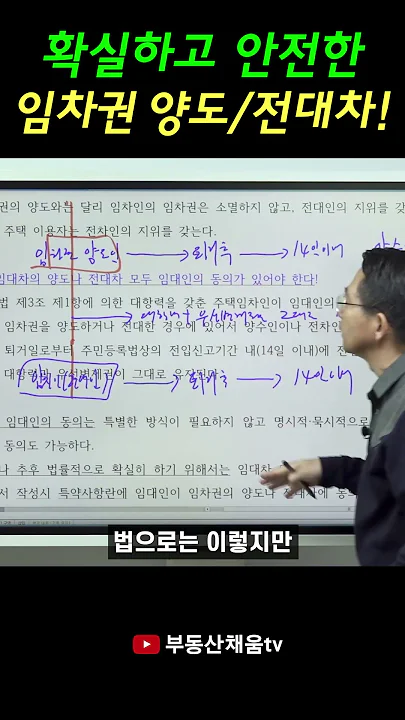 확실하고 안전한
임차권 양도/전대차!
권의 양도와는 달리 임차인의 임차권은 소멸하지 않고, 전대인의 지위를 갖
주택 이용자는 전차인의 지위를 갖는다.
임차권 양도인 퇴거축 14일이내
임대차의 양도나 전대차 모두 임대인의 동의가 있어야 한다!
법 제3조 제1항에 의한 대항력을 갖춘 주택임차인이 임대인의
임차권을 양도하거나 전대한 경우에 있어서 양수인이나 전차인
퇴거일로부터 주민등록법상의 전입신고기간 내(14일 이내)에 전
14일이내
임대인의 동의는 특별한 방식이 필요하지 않고 명시적·묵시적으로
동의도 가능하다.
나 추후 법률적으로 확실히 하기 위해서는 임대차
서 작성시 특약사항란에 임대인이 임차권의 양도나
법으로는 이렇지만
부동산채움tv